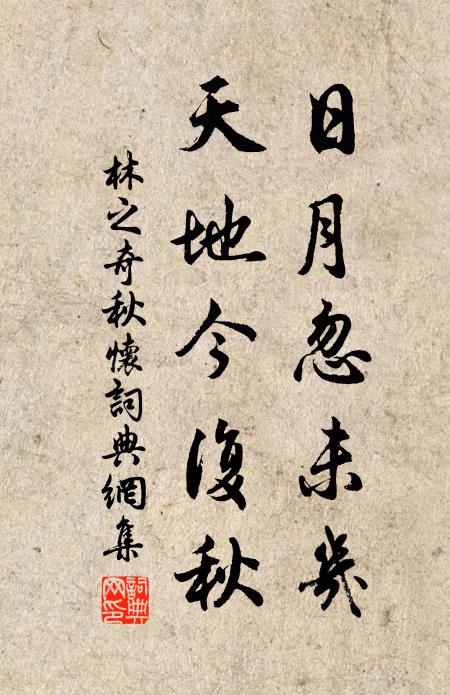 日月忽未幾
天地今復秋
林之奇秋懷詞典網集
詞典网印